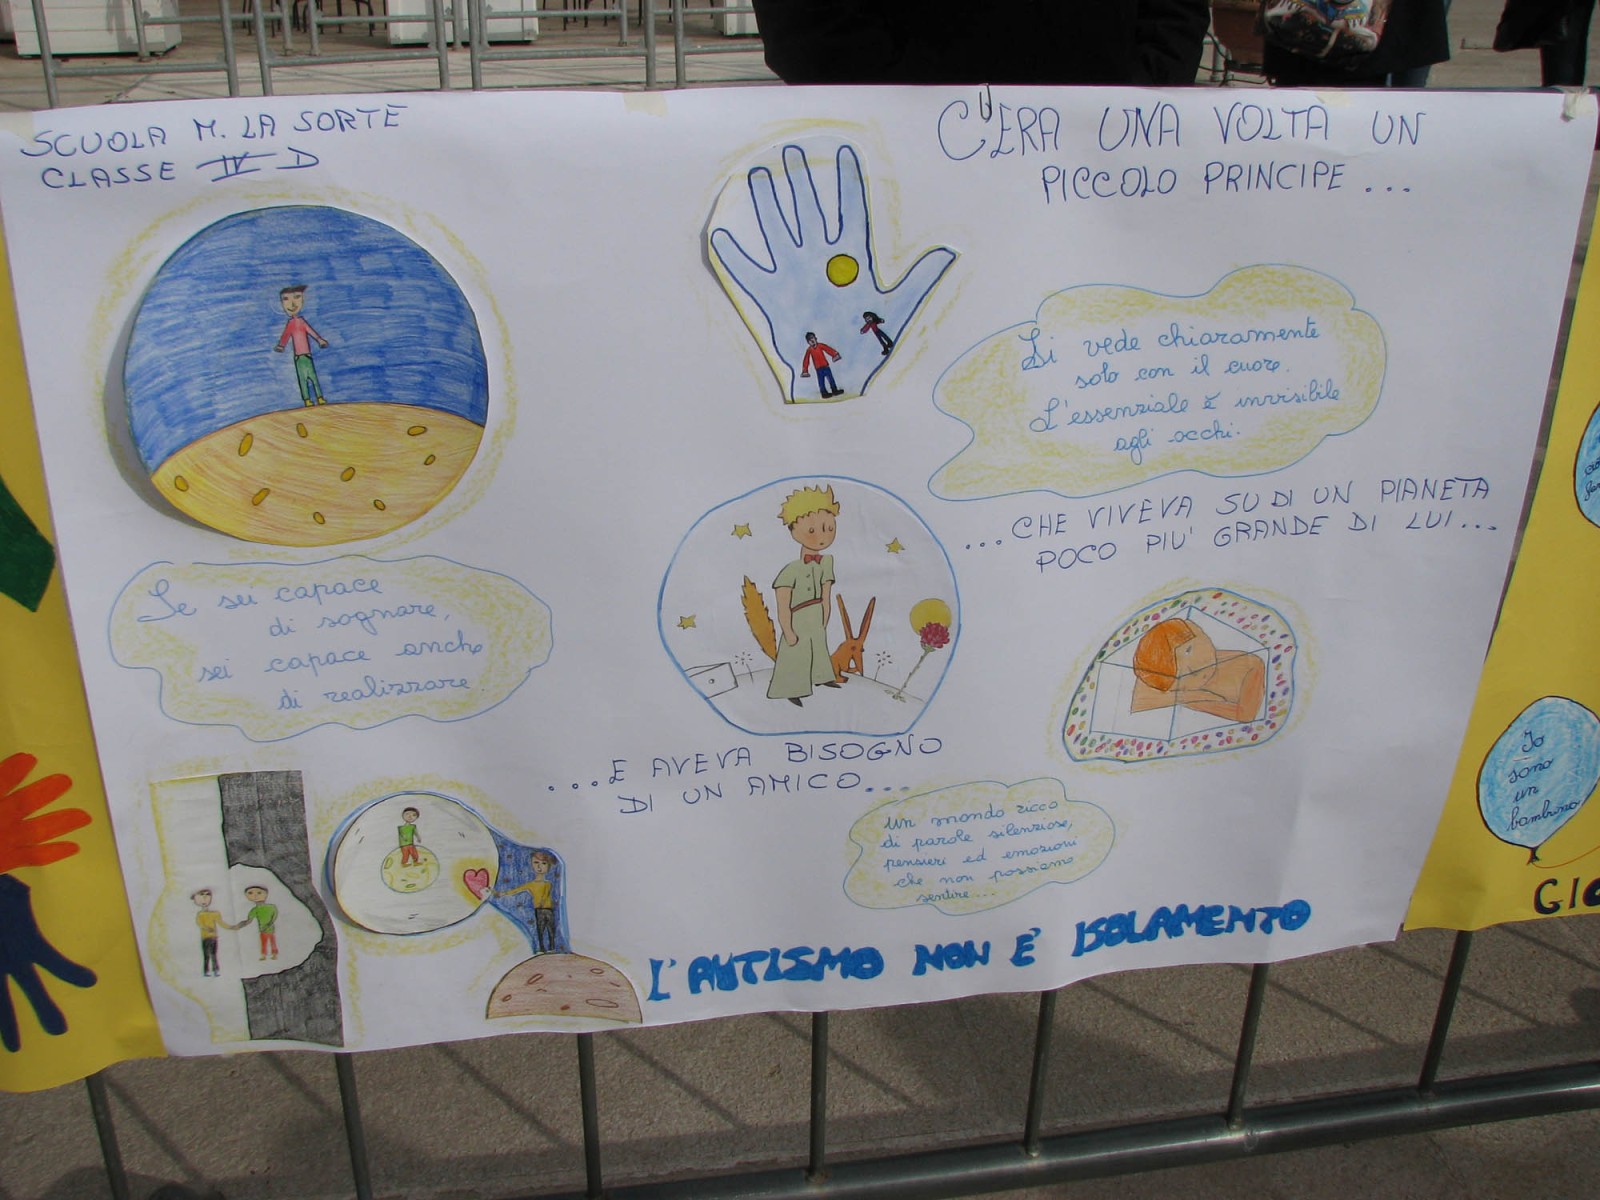 SCUOLA M. LA SORTE
CLASSE IV D
C'ERA UNA VOLTA UN
PICCOLO PRINCIPE...
Si vede chiaramente
solo con il cuore.
L'essenziale è invisibile
agli occhi.
...CHE VIVEVA SU DI UN PIANETA
POCO PIU' GRANDE DI LUI...
Se sei capace
di sognare,
sei capace anche
di realizzare
...E AVEVA BISOGNO
DI UN AMICO...
un mondo ricco
di parole silenziose,
pensieri ed emozioni
che non possiamo
sentire...
L'AUTISMO NON E' ISOLAMENTO
Io
sono
un
bambino
GIO